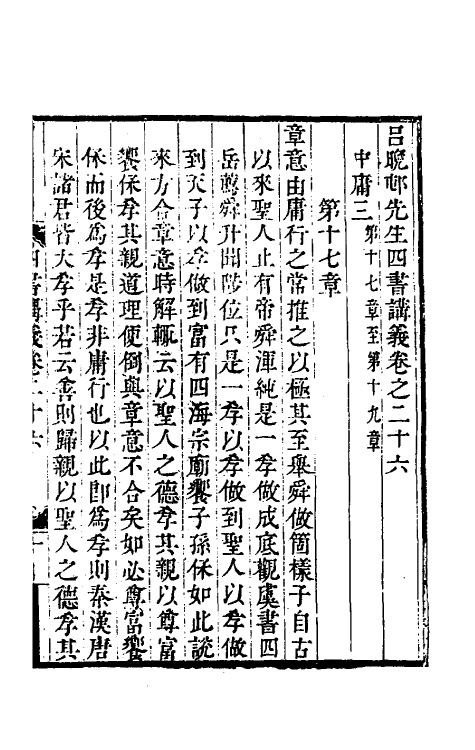 呂晚邨先生四書講義卷之二十六
中庸三第十七章至第十九章
第十七章
章意由庸行之常推之以極其至舉舜做箇樣子自古
以來聖人止有帝舜渾純是一孝做成底觀虞書四
岳薦舜升聞陟位只是一孝以孝做到聖人以孝做
到天子以孝做到富有四海宗廟饗子孫保如此說
來方合章意時解輒云以聖人之德孝其親以尊富
饗保孝其親道理便倒與章意不合矣如必尊富饗
保而後為孝是孝非庸行也以此卽為孝則秦漢唐
宋諸君皆大孝乎若云善則歸親以聖人之德孝其
四書講義卷二十六
一